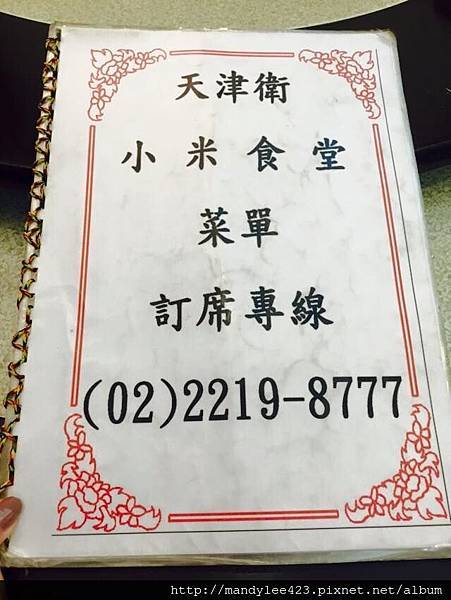 天津衛
小米食堂
菜單
訂席專線
(02)2219-8777
http://mandylee423.pixnet.net/album